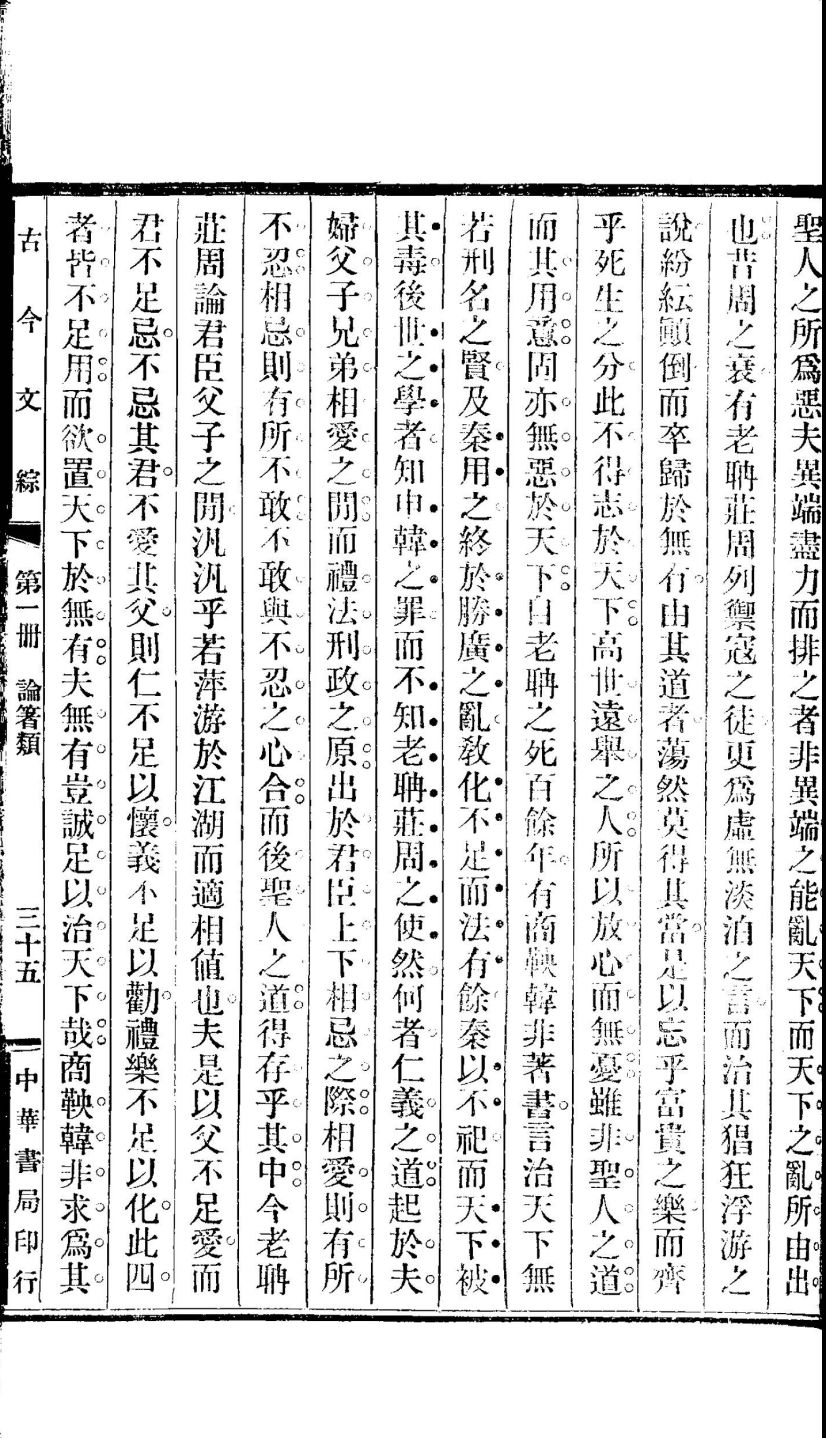 聖人之所爲惡夫異端盡力而排之者非異端之能亂天下而天下之亂所由出
也昔周之衰有老聃莊周列禦寇之徒更爲虛無淡泊之言而治其猖狂浮游之
說紛紜顚倒而卒歸於無有由其道者蕩然莫得其當是以忘乎富貴之樂而齊
乎死生之分此不得志於天下高世遠舉之人所以放心而無憂雖非聖人之道
而其用意固亦無惡於天下自老聃之死百餘年有商鞅韓非著書言治天下無
若刑名之賢及秦用之終於勝廣之亂敎化不足而法有餘秦以不祀而天下被
其毒後世之學者知申韓之罪而不知老聃莊周之使然何者仁義之道起於夫
婦父子兄弟相愛之間而禮法刑政之原出於君臣上下相忌之際相愛則有所
不忍相忌則有所不敢不敢與不忍之心合而後聖人之道得存乎其中今老聃
莊周論君臣父子之間汎汎乎若萍游於江湖而適相値也夫是以父不足愛而
君不足忌不忌其君不愛其父則仁不足以懷義不足以勸禮樂不足以化此四
者皆不足用而欲置天下於無有夫無有豈誠足以治天下哉商鞅韓非求爲其
古今文綜 第一册 論著類 三十五 中華書局印行